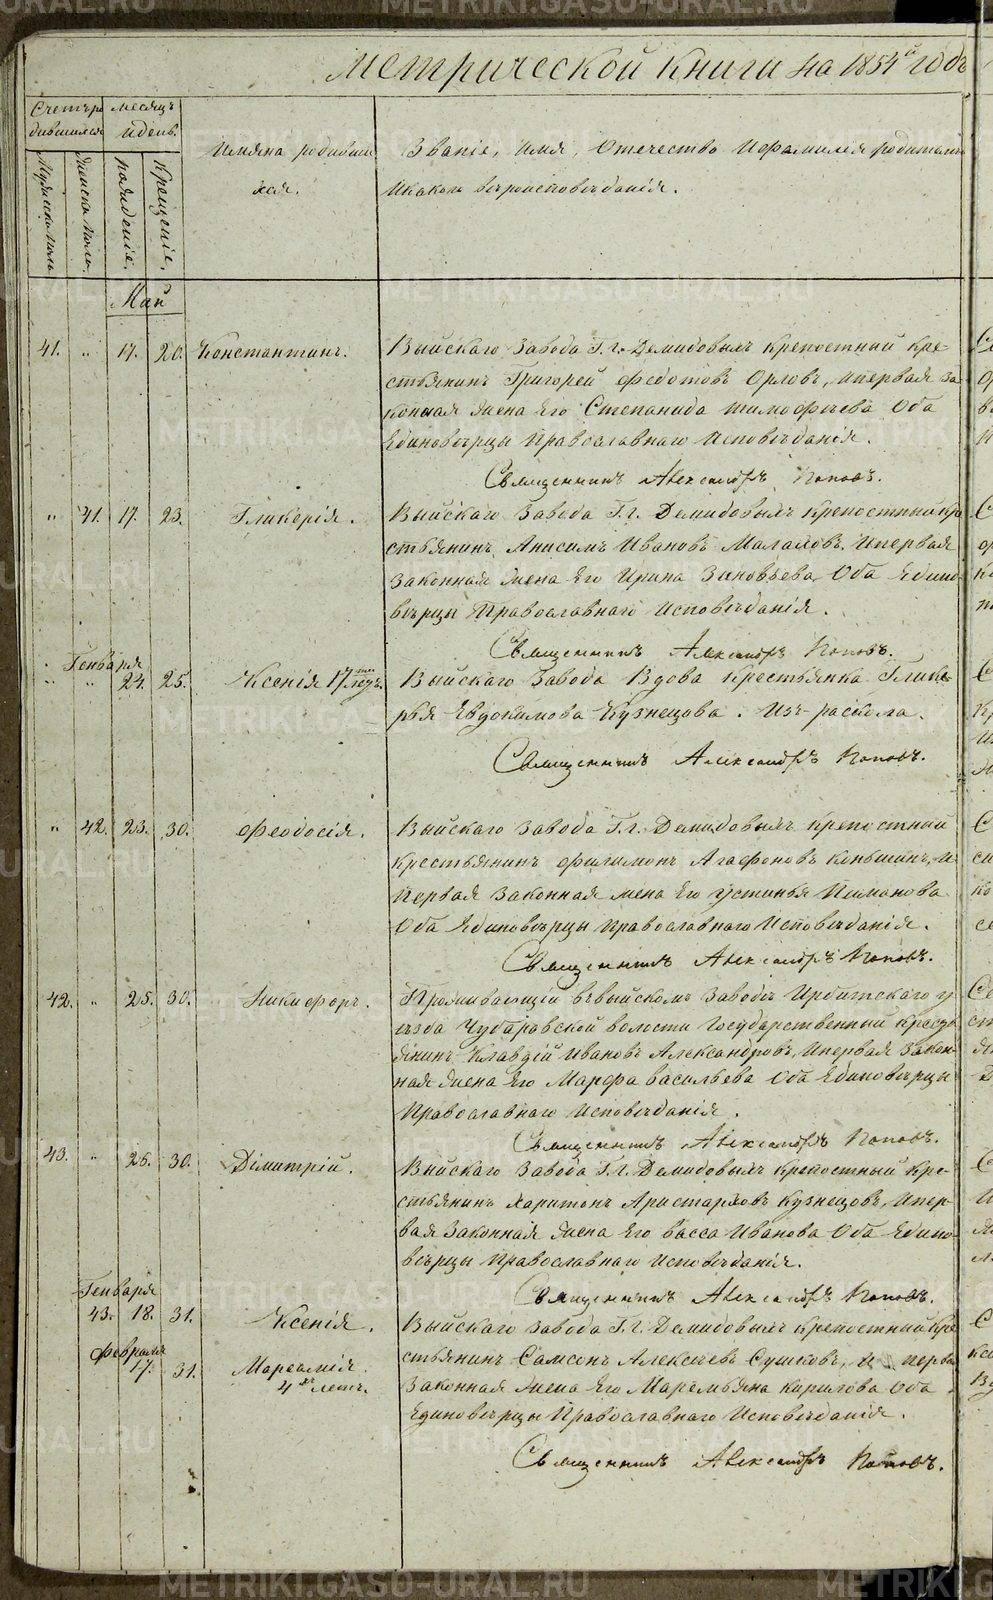 метрической книги на 1854й годъ
Счетъ ро
дившихся
месяцъ
и день.
Имяна родивши
хся.
Званіе, Имя, Отечество И фамилія родителей
И какаго вероисповѣданія.
Мужска пола
Женска пола.
рожденіе.
Крещеніе.
Май
41. " 17. 20. Константинъ. Выйскаго Завода Г. г. Демидовымъ крепостный кре-
стьянинъ Григорей Федотовъ Орловъ, и первая за
конная жена Его Степанида тимофѣева Оба
Единоверцы Православнаго Исповѣданія.
Священникъ Александръ Поповъ.
" 41. 17. 23. Гликерія. Выйскаго Завода Г. г. Демидовымъ крепостный кре
стьянинъ Анисимъ Ивановъ Малаховъ, и первая
Законная жена Его Ирина Зиновьева Оба Едино
верцы Православнаго Исповѣданія.
Священникъ Александръ Поповъ.
Генваря
" " 24. 25. Ксенія 17ти годъ. Выйскаго Завода Вдова Крестьянка Глике
рья Евдокимова Кузнецова. Изъ раскола.
Священникъ Александръ Поповъ.
" 42. 23. 30. Феодосія. Выйскаго Завода Г. г. Демидовымъ крепостный
крестьянинъ Филимонъ Агафоновъ Коньшинъ, и
Первая Законная жена Его Устинья Пиманова
Оба Единоверцы Православнаго Исповѣданія.
Священникъ Александръ Поповъ.
42. " 25. 30. Никифоръ. Проживающій в выйскомъ Заводѣ Ирбитскаго у
ѣзда Чубаровской волости Государственный кресть
янинъ Клавдій Ивановъ Александровъ, и первая Закон-
ная жена Его Марфа васильева Оба Единоверцы
Православнаго Исповѣданія.
Священникъ Александръ Поповъ.
43. " 26. 30. Димитрій. Выйскаго Завода Г. г. Демидовымъ крепостный кре-
стьянинъ Харитонъ Аристарховъ Кузнецовъ, и пер-
вая Законная жена Его васса Иванова Оба Едино-
верцы Православнаго Исповѣданія.
Священникъ Александръ Поповъ.
Генваря
43. 18. 31. Ксенія. Выйскаго Завода Г. г. Демидовымъ крепостный кре
Февраля
17. 31. Маріамія стьянинъ Самсонъ Алексѣевъ Сушковъ, и перва
4хъ летъ. Законная жена Его Маремьяна кирилова Оба
Единоверцы Православнаго Исповѣданія.
Священникъ Александръ Поповъ.
METRIKI.GASO-URAL.RU